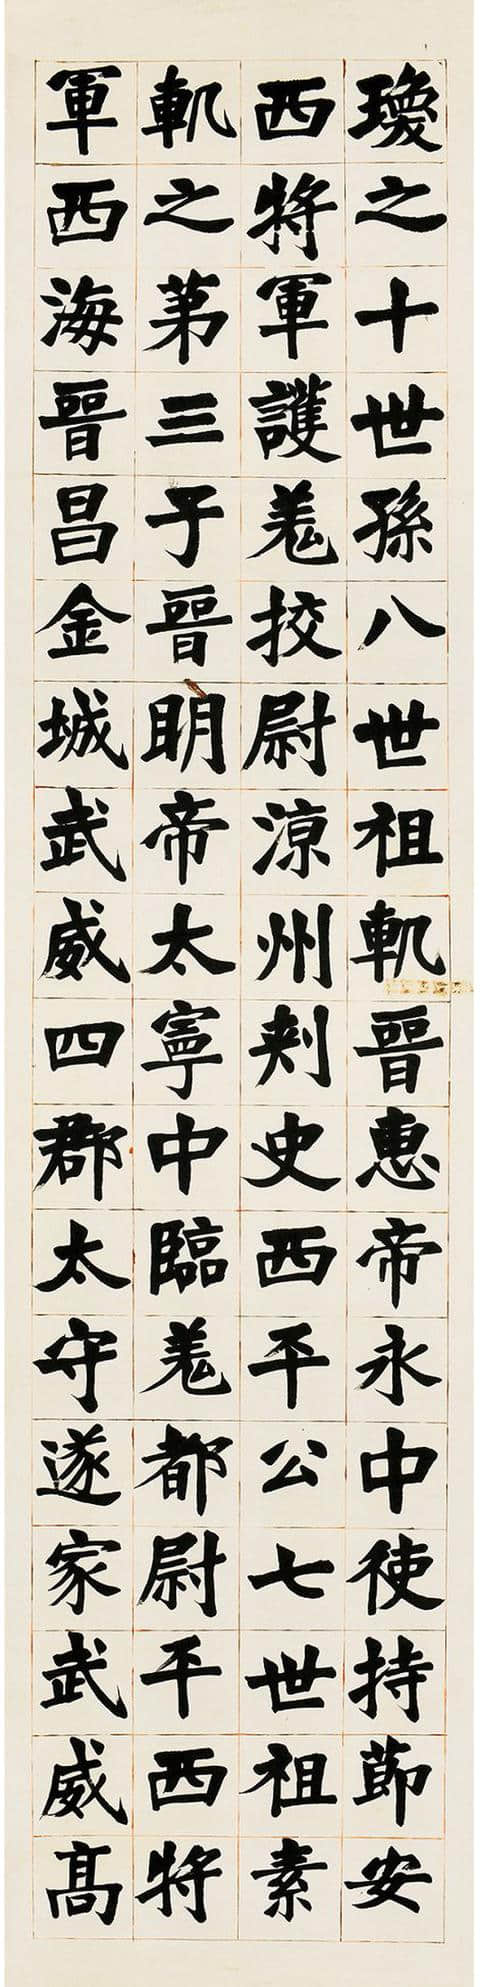 瓊之十世孫八世祖軌晉惠帝永中使持節安
西將軍護羗挍尉涼州刾史西平公七世祖素
軌之第三子晉明帝太寧中臨羗都尉平西將
軍西海晉昌金城武威四郡太守遂家武威髙